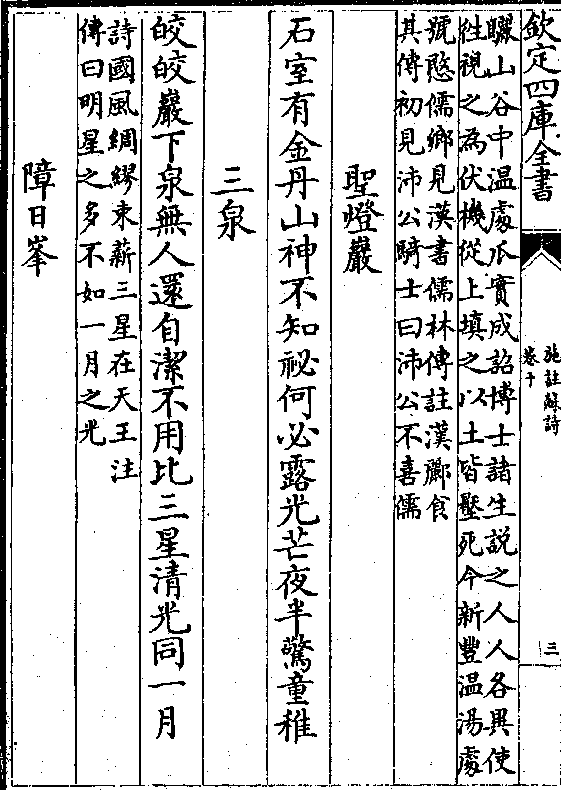 欽定四庫全書
施註蘇詩
卷十
三
驪山谷中温處瓜實成詔博士諸生説之人人各異使
徃視之為伏機從上填之以土皆壓死今新豐温湯處
號愍儒鄉見漢書儒林傳註漢酈食
其傳初見沛公騎士曰沛公不喜儒
聖燈巖
石室有金丹山神不知祕何必露光芒夜半驚童稚
三泉
皎皎巖下泉無人還自潔不用比三星清光同一月
詩國風綢繆束薪三星在天王注
傳曰明星之多不如一月之光
障日峯